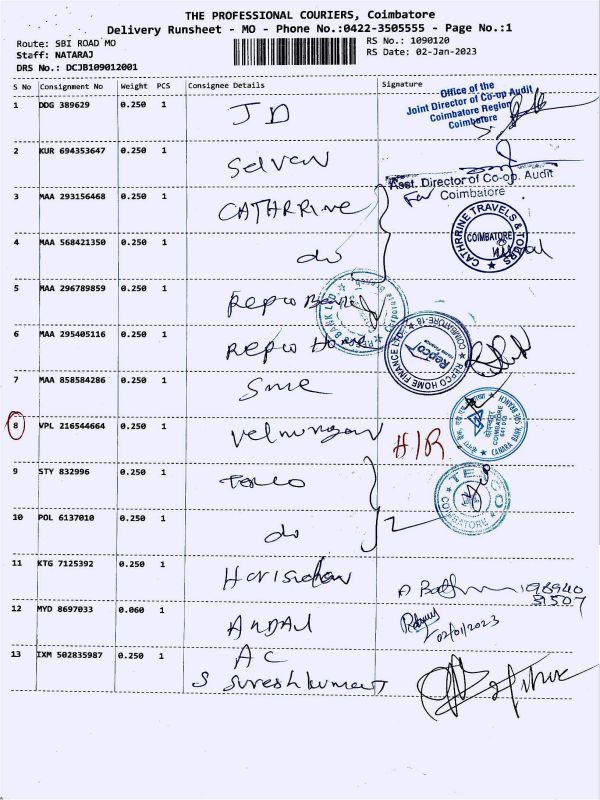 THE PROFESSIONAL COURIERS, Coimbatore
Delivery Runsheet - MO - Phone No.:0422-3505555 - Page No.:1
Route: SBI ROAD MO
RS No.: 1090120
Staff: NATARAJ
RS Date: 02-Jan-2023
DRS No.: DCJB109012001
S No Consignment No Weight PCS Consignee Details Signature
1 DDG 389629 0.250 1 JD
Office of the
Joint Director of Co-op Audit
Coimbatore Region
Coimbatore
2 KUR 694353647 0.250 1 Selvan
Asst. Director of Co-op. Audit
For Coimbatore
3 MAA 293156468 0.250 1 CATHRRINE
CATHRRINE TRAVELS & TOURS
COIMBATORE
4 MAA 568421350 0.250 1 do
5 MAA 296789859 0.250 1 Repco Bank
6 MAA 295405116 0.250 1 Repco Home
REPCO HOME FINANCE LTD.
COIMBATORE-18
Repco
7 MAA 858584286 0.250 1 Sme
CANARA BANK, SME BRANCH
COIMBATORE
8 VPL 216544664 0.250 1 Velmurugan H/R
9 STY 832996 0.250 1
COIMBATORE
10 POL 6137010 0.250 1 do
11 KTG 7125392 0.250 1
98940
12 MYD 8697033 0.060 1 ANDAL
02/01/2023
13 IXM 502835987 0.250 1 AC
S Sureshkumar